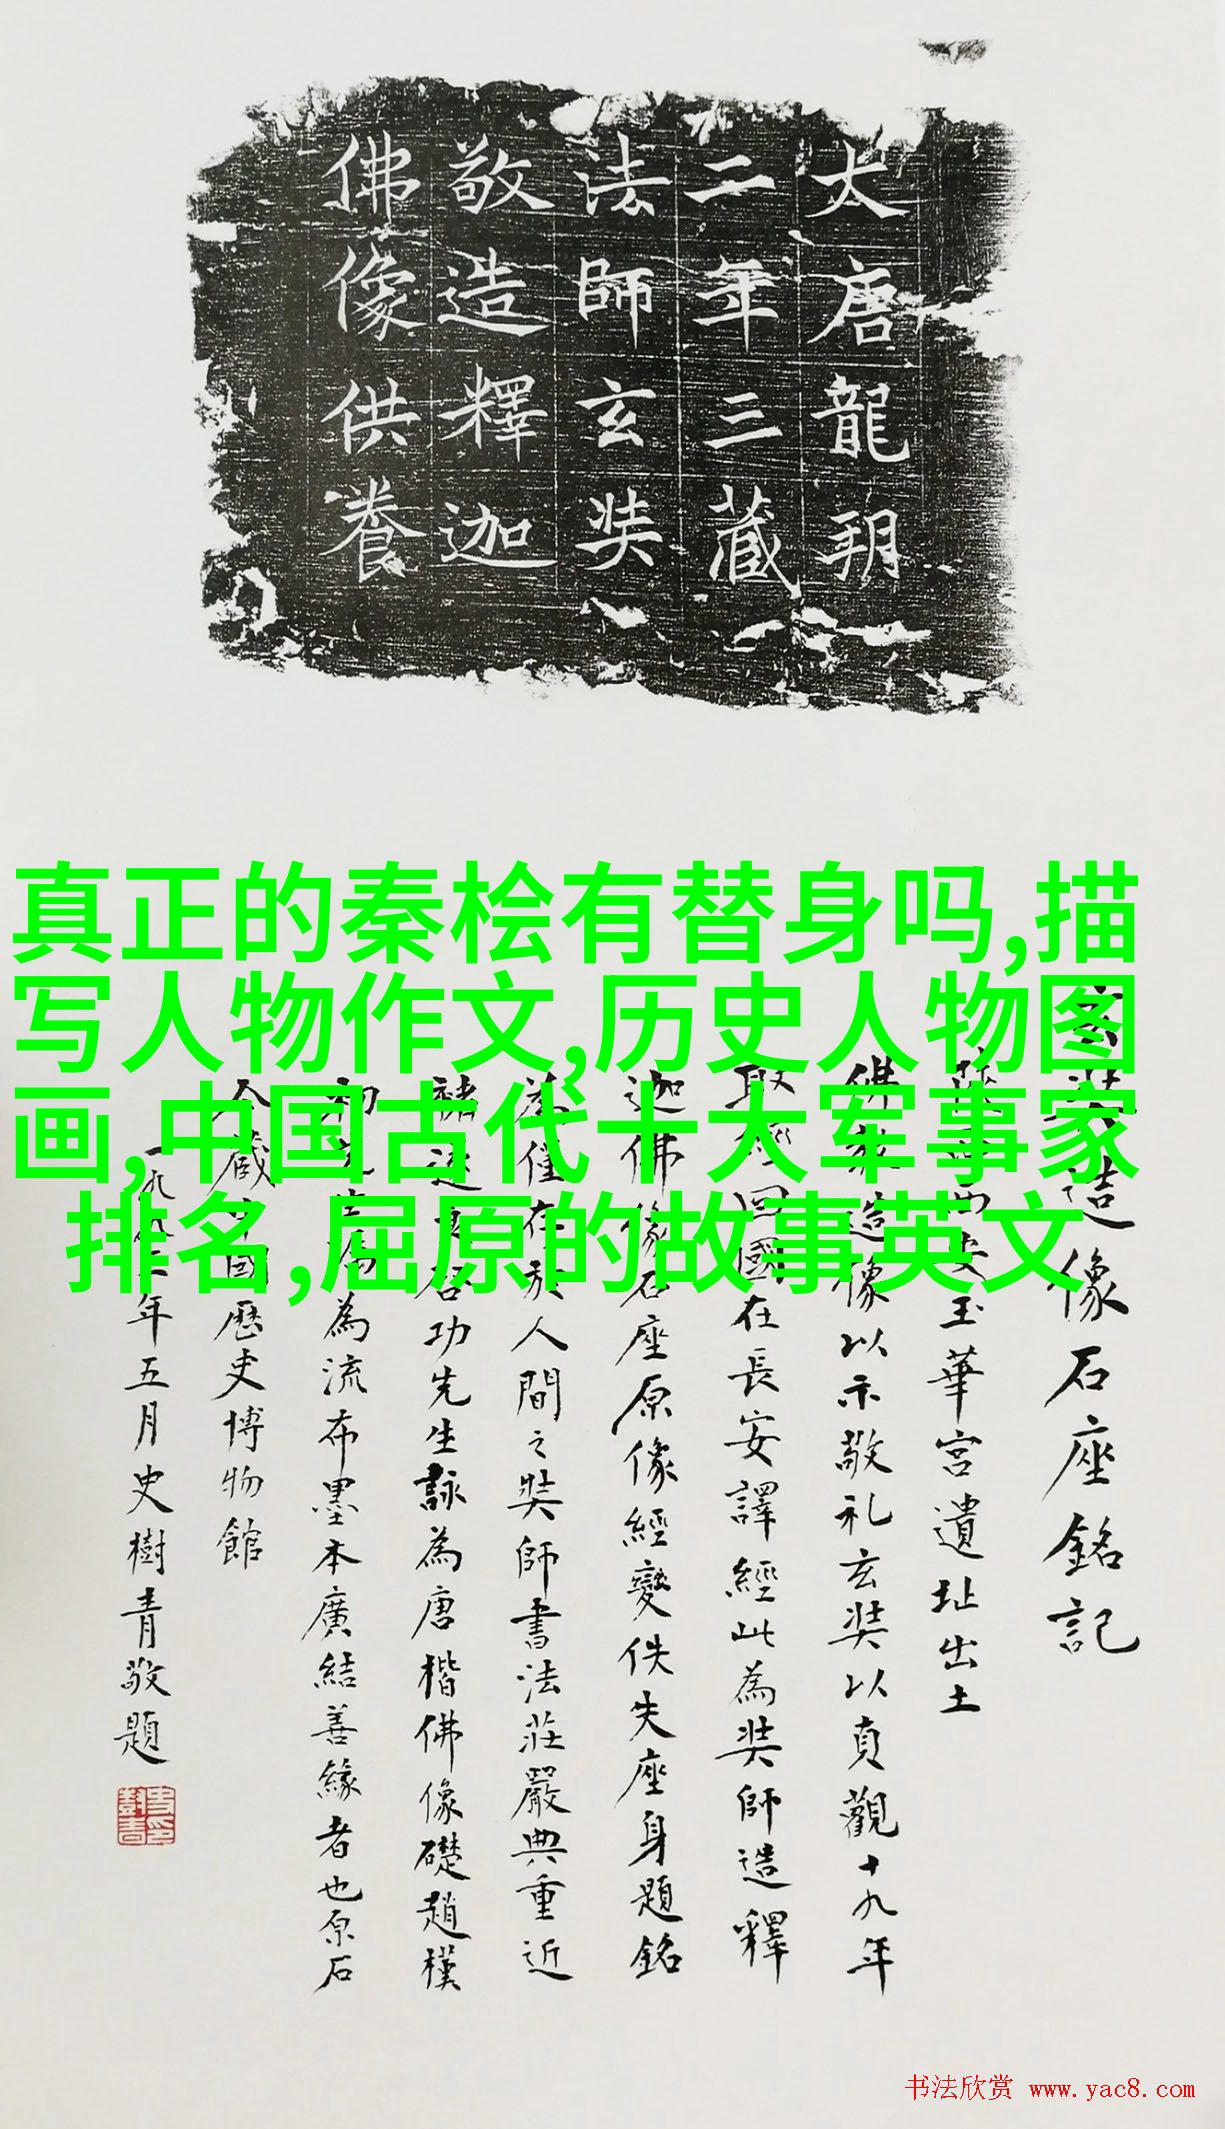 大唐龍朔
二年三藏
法師玄奘
敬造釋迦
佛像供養
真正的秦桧有替身吗,描
写人物作文,历史人物图
画,中国古代十大军事家
排名,屈原的故事英文
玄奘造像石座銘記
玉華宮遺址出土
佛 造像以示敬礼玄奘以貞觀十九年
取經回國在長安譯經此為奘師造釋
迦佛像石座原像經變佚失座身題銘
僅存於人間之奘師書法莊嚴典重近
褚遂良啓功先生詠為唐楷佛像礎趙樸
初先生 為流布墨本廣結善緣者也原石
今藏中國歷史博物館
一九 年五月史樹青敬題
书法欣赏 www.yac8.com